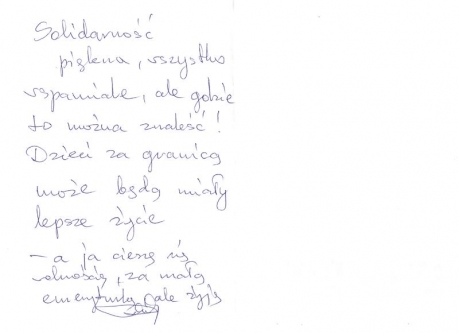 Solidarność
piękna, wszystko
wspaniałe, ale gdzie
to można znaleść!
Dzieci za granicą
może będą miały
lepsze życie
- a ja cieszę się
wolnością, za małą
emeryturką, ale żyję